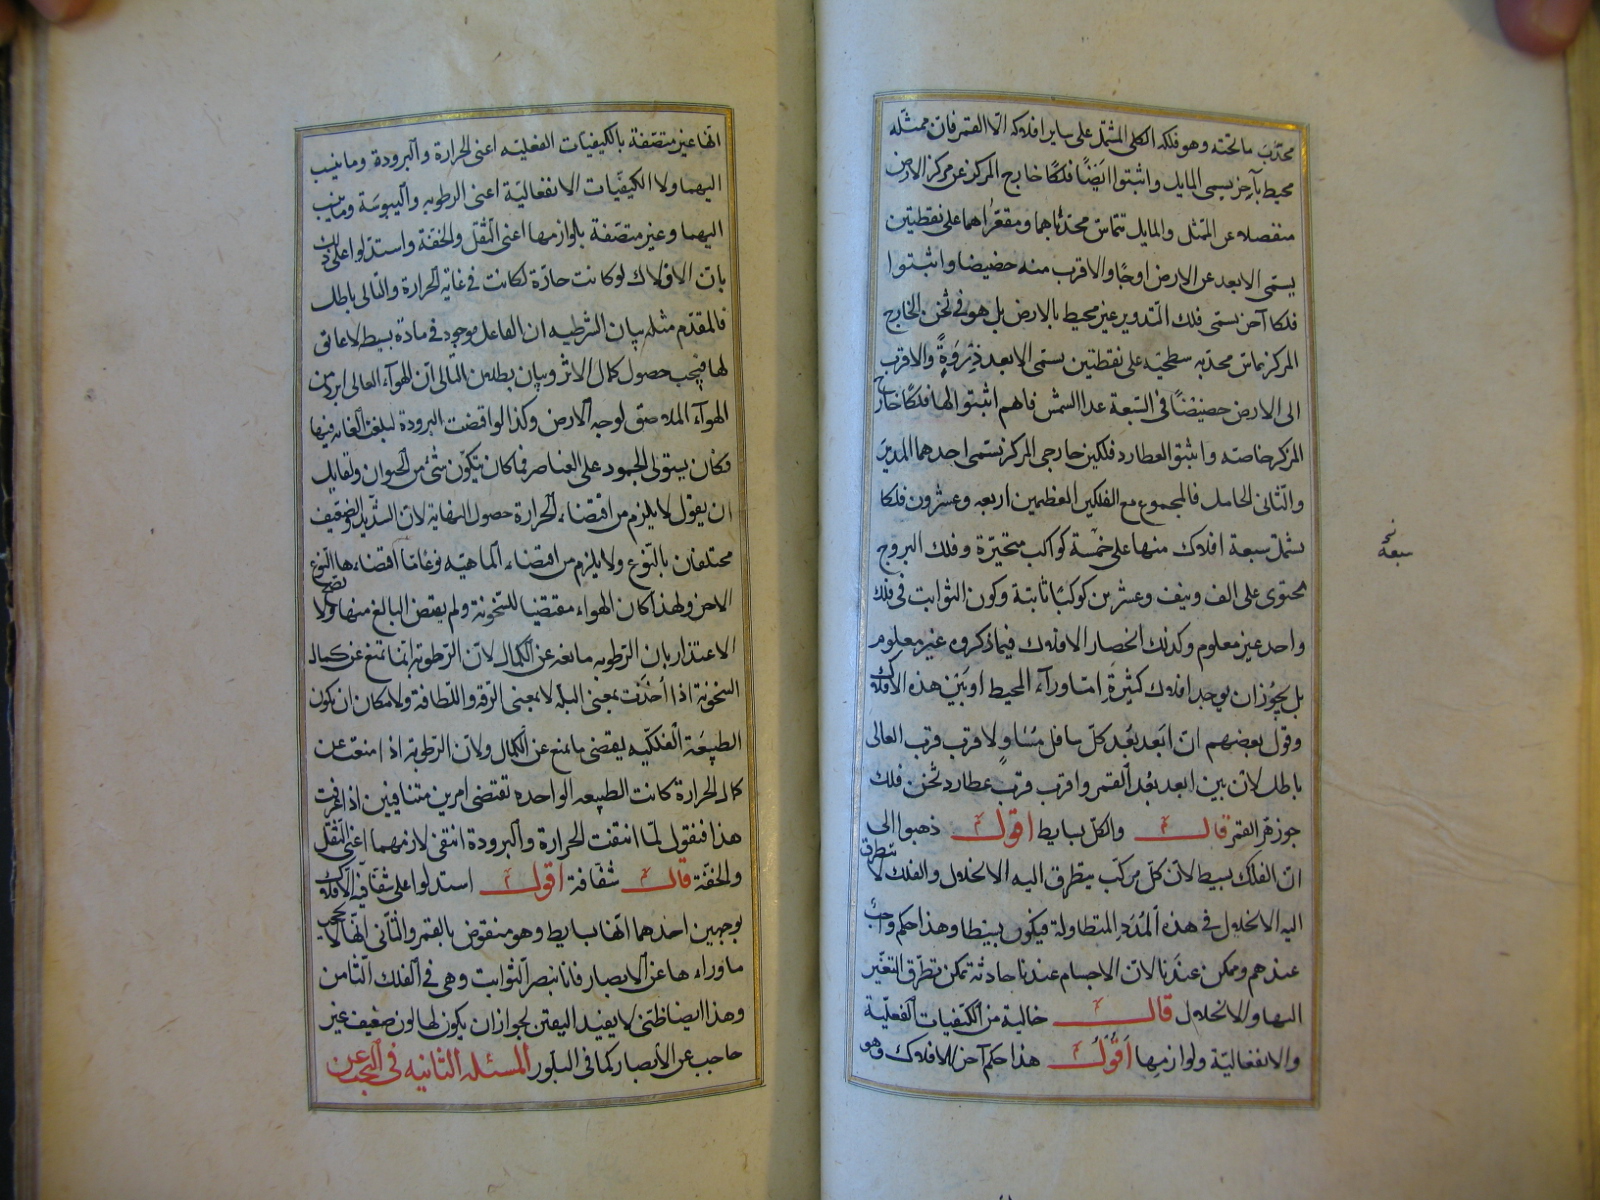 محدّبَ ما تحته وهو فلكه الكلى المشتمل على ساير افلاكه الّا القمر فان ممثّله
محيط بآخر يسمى المايل واثبتوا ايضًا فلكًا خارج المركز عن مركز الارض
منفصلا عن الممثل والمايل تتماسّ محدّباهما ومقعّراهما على نقطتين
يسمّى الابعد عن الارض اوجًا والاقرب منه حضيضا واثبتوا
فلكا آخر يسمّى فلك التدوير غير محيط بالارض بل هو فى ثخن الخارج
المركز يماسّ محدبه سطحيه على نقطتين يسمى الابعد ذِرْوَةً والاقرب
الى الارض حضيضًا فى السّبعة عدا الشمس فانهم اثبتوا لها فلكًا خارج
المركز خاصة واثبتوا لعطارد فلكين خارجى المركز يسمى احدهما المدير
والثّانى الحامل فالمجموع مع الفلكين العظيمين اربعه وعشرون فلكا
يشتمل سبعة افلاك منها على خمسة كواكب متحيّرة وفلك البروج
يحتوى على الف ونيف وعشرين كوكبًا ثابتة وكون الثوابت فى فلك
واحد غير معلوم وكذلك انحصار الافلاك فيما ذكروه غير معلوم
بل يجوُز ان يوجد افلاك كثيرةٍ امّا وراء المحيط او بَيْن هذه الافلاك
وقول بعضهم انّ ابعد بُعد كلّ سافل مسَاوٍ لاقرب قرب العالى
باطل لانّ بين ابعد بُعد القمر واقرب قرب عطارد ثخن فلك
جوزهر القمر قال والكلّ بسايط اقول ذهبوا الى
انّ الفلك بسيط لانّ كلّ مركّب يتطرق اليه الانحلال والفلك لا يتطرق
اليه الانحلال فى هذه المُدَد المتطاولة فيكون بسيطا وهذا حكم واجب
عندهم وممكن عندَنا لانّ الاجسام عندنا حادثة يمكن تطرّق التغيّر
اليها والانحلال قال خالية من الكيفيات الفعليّة
والانفعاليّة ولوازمها اقول هذا حكم آخر للافلاك وهو
نخ
سبعة
انّها غير متصّفة بالكيفيات الفعليّه اعنى الحرارة والبرودة وما ينسب
اليهما ولا الكيفيّات الانفعاليّة اعنى الرطوبه واليبوسَة وما ينسب
اليهما وغير متصّفة بلوازمها اعنى الثقل والخفّة واستدلوا على ذلك
بانّ الافلاك لو كانت حارّة لكانت فى غاية الحرارة والتالى باطل
فالمقدّم مثله بيان الشرطيه ان الفاعل موجود فى مادّة بسيطه لا عائق
لها فيجب حصول كمال الاثر وبيان بطلان التالى انّ الهوآء العالى ابرد من
الهوآء الملاصق لوجه الارض وكذا لو اقتضت البرودة لبلغت الغاية فيها
وكان يستولى الجمود على العناصر فما كان يتكوّن شئ من الحيوان ولقايل
ان يقول لا يلزم من اقتضاء الحرارة حصول النهاية لانّ الشّديد والضّعيف
مختلفان بالنّوع ولا يلزم من اقتضاء الماهيّة نوعًا ما اقتضاءها النّوع
الاخر ولهذا كان الهواء مقتضيا للسخونة ولم يقتض البالغ منها ولا يصح
الاعتذار بان الرّطوبه مانعه عن الكمال لانّ الرّطوبة انّما تمنع عن كمال
السخونة اذا اُخذت بمعنى البلّة لا بمعنى الرّقة واللّطافة ولامكان ان يكون
الطبيعَة الفلكيّه يقتضى ما يمنع عن الكمال ولانّ الرّطوبة اذا منعت عن
كمال الحرارة كانت الطبيعه الواحده تقتضى امرين متنافيين اذا عرفت
هذا فنقول لمّا انتفت الحرارة والبرودة انتفى لازمهما اعنى الثّقل
والخفّة قال شفّافة اقول استدلوا على شفّافية الافلاك
بوجهين احدهما انّها بسايط وهو منقوض بالقمر والثّانى انّها لا تحجب
ما وراءها عن الابصار فانّا نبصر الثوابت وهى فى الفلك الثّامن
وهذا ايضا ظنّى لا يفيد اليقين لجواز ان يكون لها لون ضعيف غير
حاجب عن الابصار كما فى البلّور المسئلة الثانيه فى البحث عن